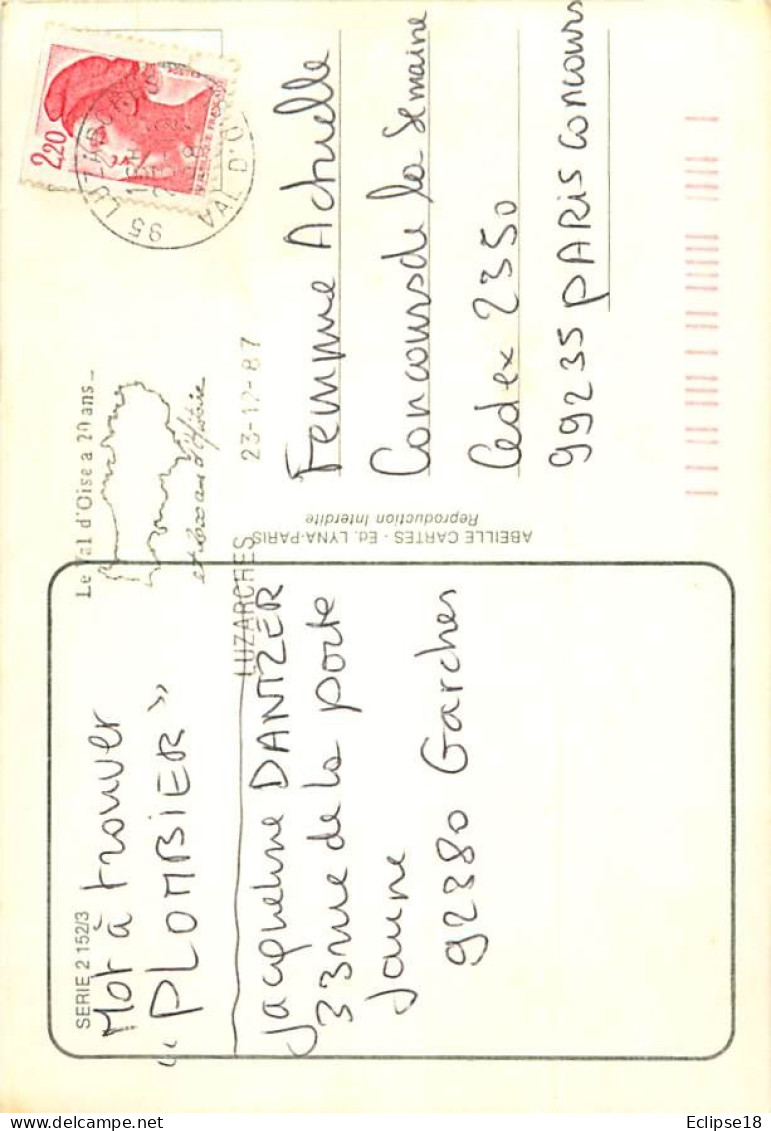 SERIE 2 152/3
Mot à trouver
" PLOMBIER "
Jacqueline DANTZER
33 rue de la porte
jaune
92380 Garches
ABEILLE CARTES - Ed. LYNA-PARIS
Reproduction Interdite
Le Val d'Oise a 20 ans...
LUZARCHES
23-12-87
2,20
95 LUZARCHES
VAL D'O
Femme Actuelle
Concours de la Semaine
Cedex 2350
99235 PARIS CONCOURS
Eclipse18